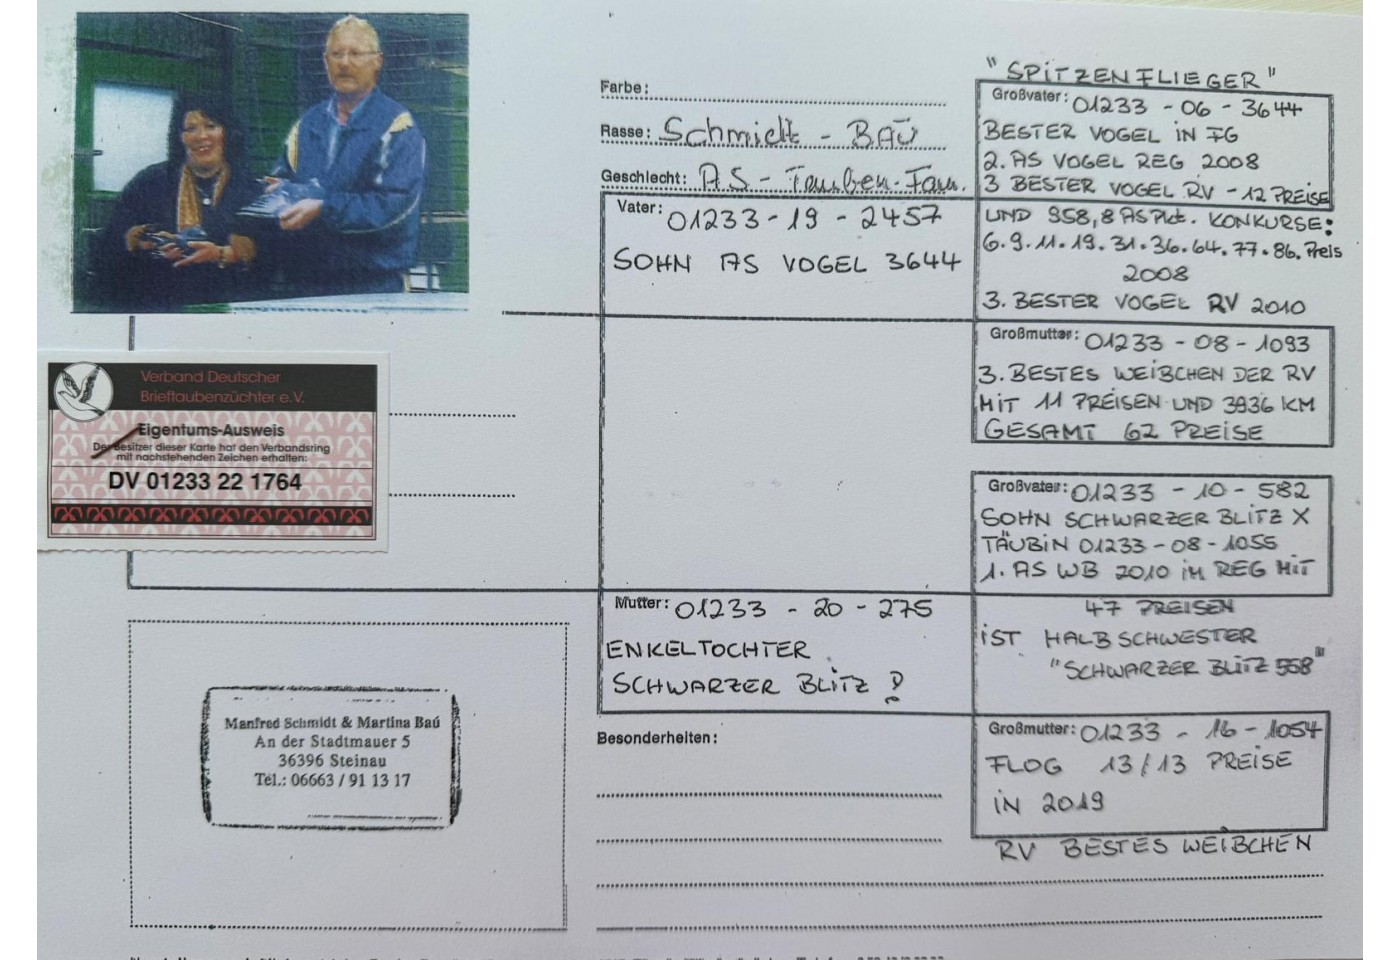 Verband Deutscher
Brieftaubenzüchter e.V.
Eigentums-Ausweis
Der Besitzer dieser Karte hat den Verbandsring
mit nachstehenden Zeichen erhalten:
DV 01233 22 1764
Manfred Schmidt & Martina Baú
An der Stadtmauer 5
36396 Steinau
Tel.: 06663 / 91 13 17
Farbe:
Rasse: Schmidt - BAÚ
Geschlecht: AS - Tauben-Fam.
Vater: 01233 - 19 - 2457
SOHN AS VOGEL 3644
Mutter: 01233 - 20 - 275
ENKELTOCHTER
SCHWARZER BLITZ
Besonderheiten:
"SPITZENFLIEGER"
Großvater: 01233 - 06 - 3644
BESTER VOGEL IN FG
2. AS VOGEL REG 2008
3 BESTER VOGEL RV - 12 PREISE
UND 958,8 ASPkt. KONKURSE:
6. 9. 11. 19. 31. 36. 64. 77. 86. Preis
2008
3. BESTER VOGEL RV 2010
Großmutter: 01233 - 08 - 1093
3. BESTES WEIBCHEN DER RV
MIT 11 PREISEN UND 3936 KM
GESAMT 62 PREISE
Großvater: 01233 - 10 - 582
SOHN SCHWARZER BLITZ X
TÄUBIN 01233 - 08 - 1055
1. AS WB 2010 IM REG MIT
47 PREISEN
IST HALBSCHWESTER
"SCHWARZER BLITZ 558"
Großmutter: 01233 - 16 - 1054
FLOG 13/13 PREISE
IN 2019
RV BESTES WEIBCHEN